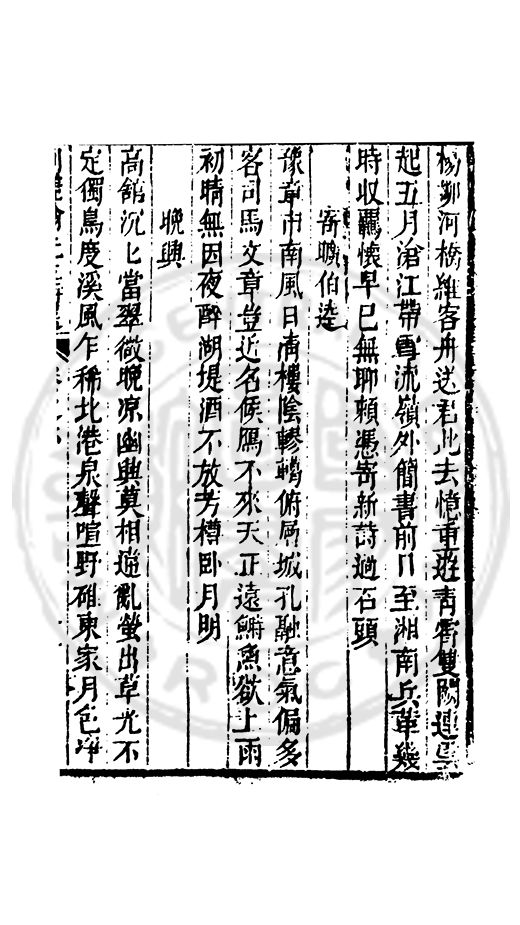 楊柳河橋維客舟送君此去憶重遊青霄雙闕連雲
起五月滄江帶雪流嶺外簡書前日至湘南兵革幾
時収羈懷早已無聊賴憑寄新詩過石頭
寄曠伯逵
豫章市南風日清樓陰轇轕俯層城孔融意氣偏多
客司馬文章豈近名候鴈不來天正遠鯿魚欲上雨
初晴無因夜醉湖堤酒不放芳樽卧月明
晚興
高館沉匕當翠微晚凉幽興莫相違亂螢出草光不
定獨鳥度溪風乍稀北港泉聲喧野碓東家月色淨